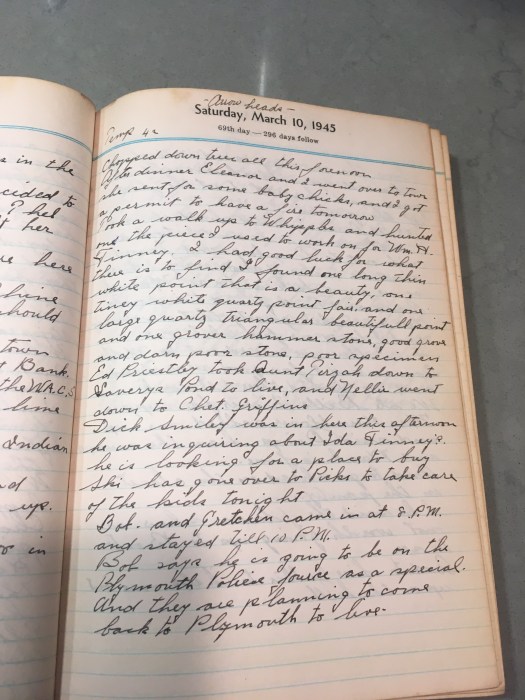 s in the
cided to
I hel
f her
re here
hine
should
town
t Bank.
the W.A.C.S
time
Indian
nd
up.
in
- Arrow heads -
Saturday, March 10, 1945
69th day — 296 days follow
Temp 42
Chopped down trees all this forenoon
After dinner Eleanor and I went over to town
she sent for some baby chicks, and I got
a permit to have a fire tomorrow
Took a walk up to and hunted
one the piece I used to work on for Wm. H.
Finney. I had good luck for what
there is to find I found one long thin
white point that is a beauty, one
tiney white quartz point fair, and one
large quartz triangular beautifull point
and one grover hammer stone, good grove
and darn poor stone, poor specimen
Ed Priestley took Aunt Tirzah down to
Saverys Pond to live, and Nellie went
down to Chet. Griffins
Dick Smiley was in here this afternoon
he was inquiring about Ida Finney's.
he is looking for a place to buy
Ski has gone over to Picks to take care
of the kids tonight
Bob. and Gretchen came in at 8 P.M.
and stayed till 10 P.M.
Bob says he is going to be on the
Plymouth Police fource as a special.
And they are planning to come
back to Plymouth to live.